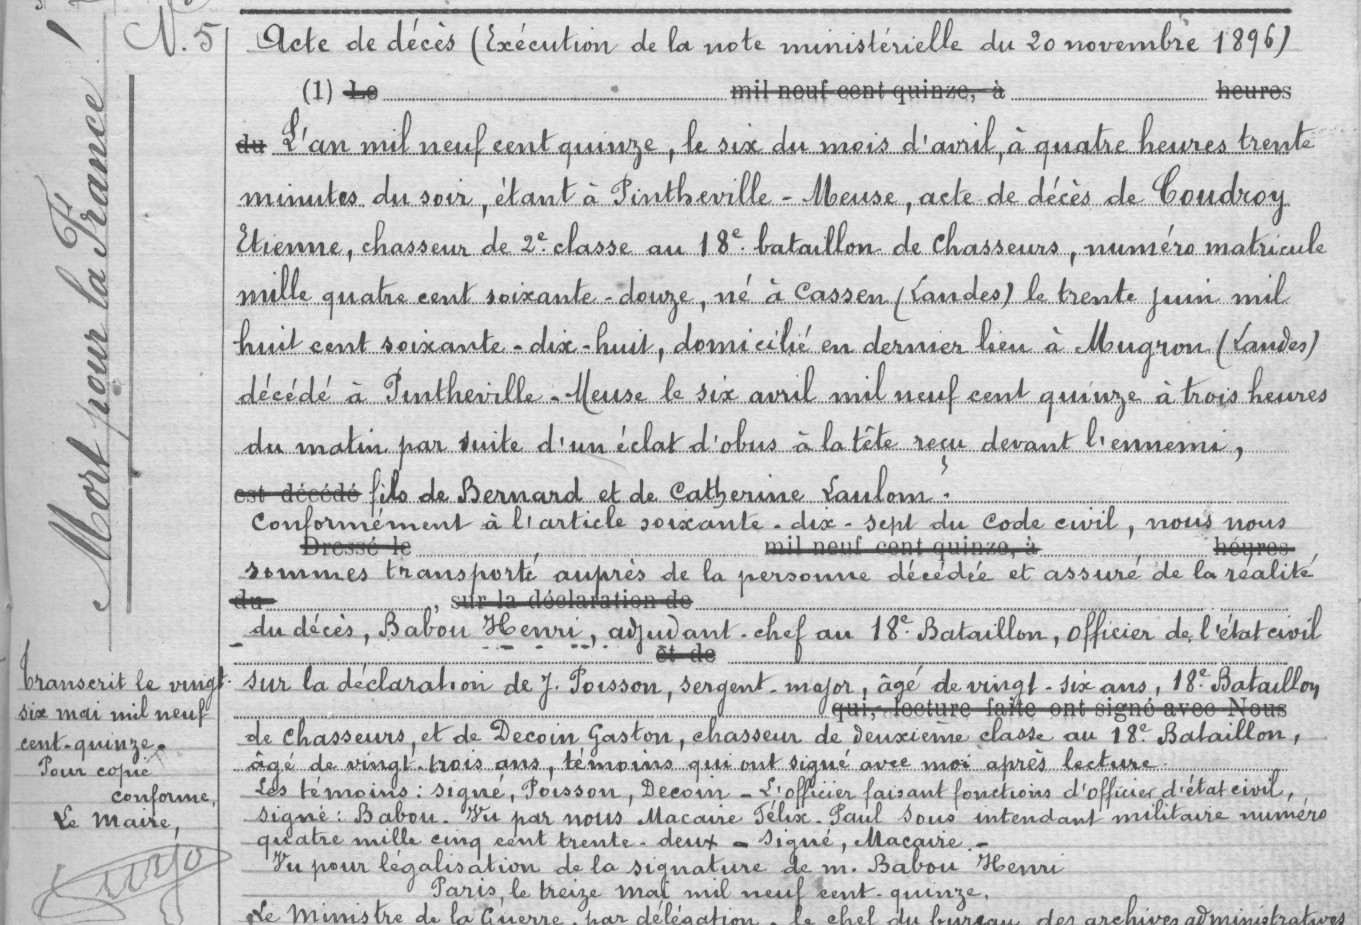 Mort pour la France !
N. 5
Acte de décès (Exécution de la note ministérielle du 20 novembre 1896)
(1) Le mil neuf cent quinze, à heures
du L'an mil neuf cent quinze, le six du mois d'avril, à quatre heures trente
minutes du soir, étant à Pintheville - Meuse, acte de décès de Coudroy
Etienne, chasseur de 2e classe au 18e bataillon de Chasseurs, numéro matricule
mille quatre cent soixante-douze, né à Cassen (Landes) le trente juin mil
huit cent soixante-dix-huit, domicilié en dernier lieu à Mugron (Landes)
décédé à Pintheville - Meuse le six avril mil neuf cent quinze à trois heures
du matin par suite d'un éclat d'obus à la tête reçu devant l'ennemi,
est décédé fils de Bernard et de Catherine Laulom.
Conformément à l'article soixante-dix-sept du Code civil, nous nous
Dressé le mil neuf cent quinze, à heures
sommes transporté auprès de la personne décédée et assuré de la réalité
du , sur la déclaration de
du décès, Babou Henri, adjudant-chef au 18e Bataillon, officier de l'état civil
et de
sur la déclaration de J. Poisson, sergent-major, âgé de vingt-six ans, 18e Bataillon
qui, lecture faite ont signé avec Nous
de Chasseurs, et de Decoin Gaston, chasseur de deuxième classe au 18e Bataillon,
âgé de vingt-trois ans, témoins qui ont signé avec moi après lecture.
Les témoins : signé, Poisson, Decoin - L'officier faisant fonctions d'officier d'état civil,
signé : Babou. Vu par nous Macaire Félix-Paul sous intendant militaire numéro
quatre mille cinq cent trente-deux - Signé, Macaire. -
Vu pour légalisation de la signature de m. Babou Henri
Paris, le treize mai mil neuf cent-quinze.
Le Ministre de la Guerre, par délégation, le chef du bureau des archives administratives
Transcrit le vingt-
six mai mil neuf
cent-quinze.
Pour copie
conforme,
Le Maire,